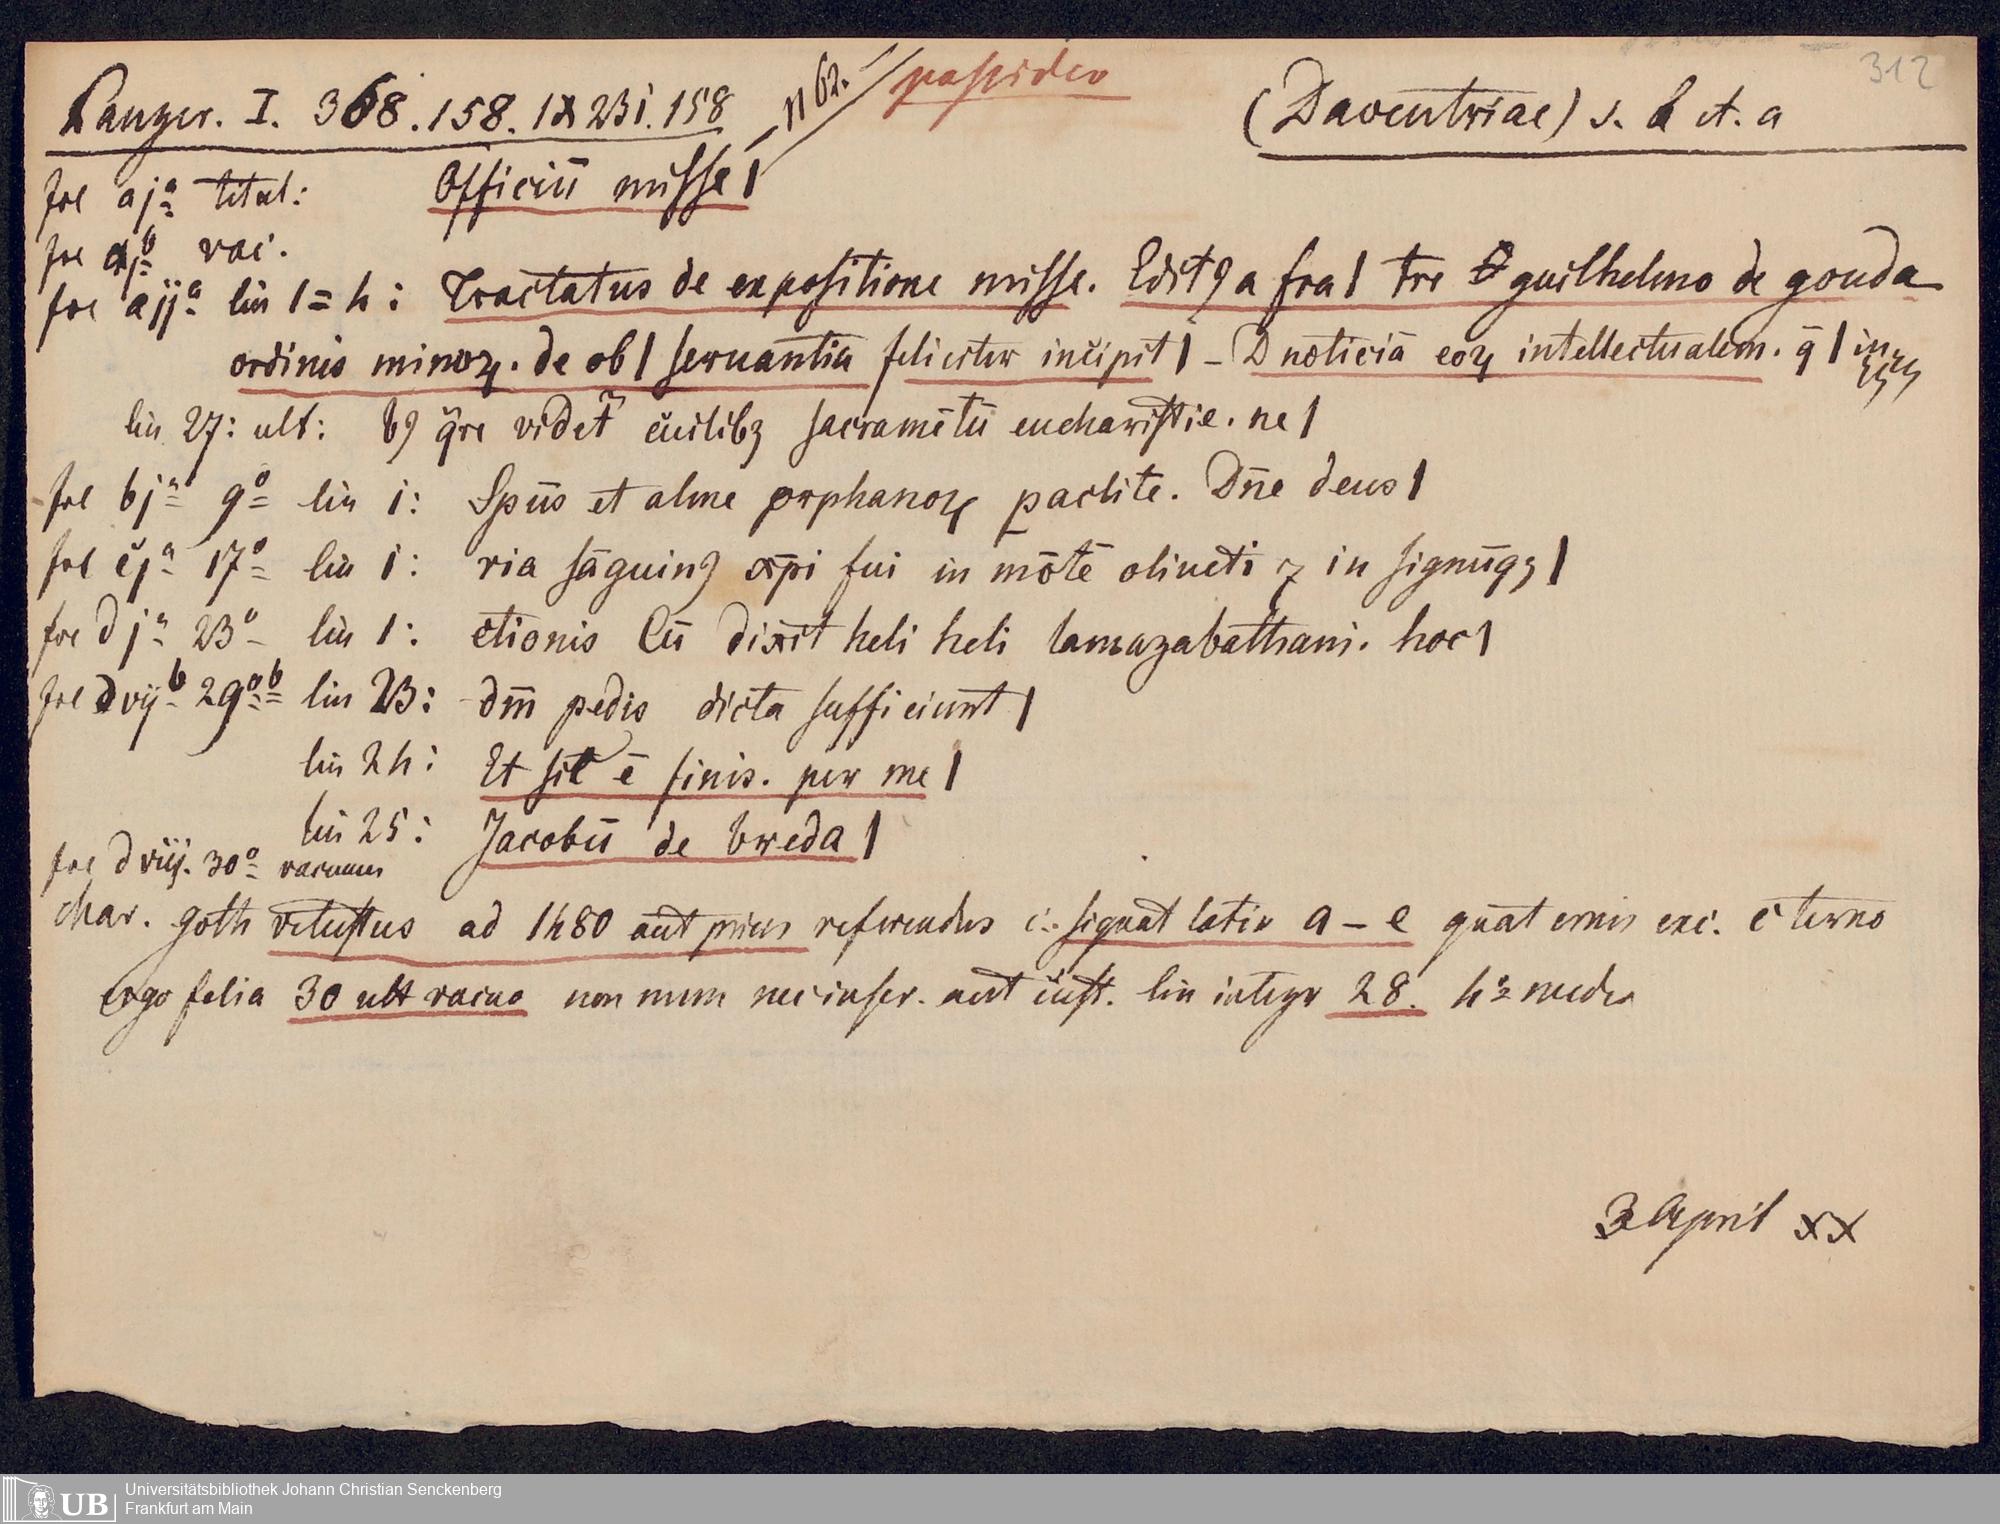 312
Panzer. I. 368. 158. IX 231. 158 n 62. possideo (Daventriae) s. l et. a
fol aja titul: Officiū misse|
fol ajb vac.
fol aija lin 1=4: Tractatus de expositione misse. Editꝯ a fra| tre guilhelmo de gouda
ordinis minoꝝ. de ob| seruantia feliciter incipit| - D noticiā eoꝝ intellectualem. q̄| in
lin 27: ult: bꝯ q̄re videt cuilibꝫ sacramētū eucharistie. ne|
fol bja 9o lin 1: Spūs et alme orphanoꝝ paclite. Dn̄e deus|
fol cja 17o lin 1: ria sāguinꝯ xp̄i fui in mōtē oliueti ⁊ in signūqꝫ|
fol dja 23o lin 1: ctionis Cū dixit heli heli lamazabathani. hoc|
fol dvijb 29ob lin 23: dm̄ pedis dicta sufficiunt|
lin 24: Et sic ē finis. per me|
lin 25: Jacobū de breda|
fol dviij. 30o vacuum
char. goth vetustus ad 1480 aut prius referendus c. signat latin a – e quaternis exc. c terno
ergo folia 30 ult vacuo non num nec inscr. aut cust. lin integr 28. 4o media
3 April XX
UB Universitätsbibliothek Johann Christian Senckenberg
Frankfurt am Main